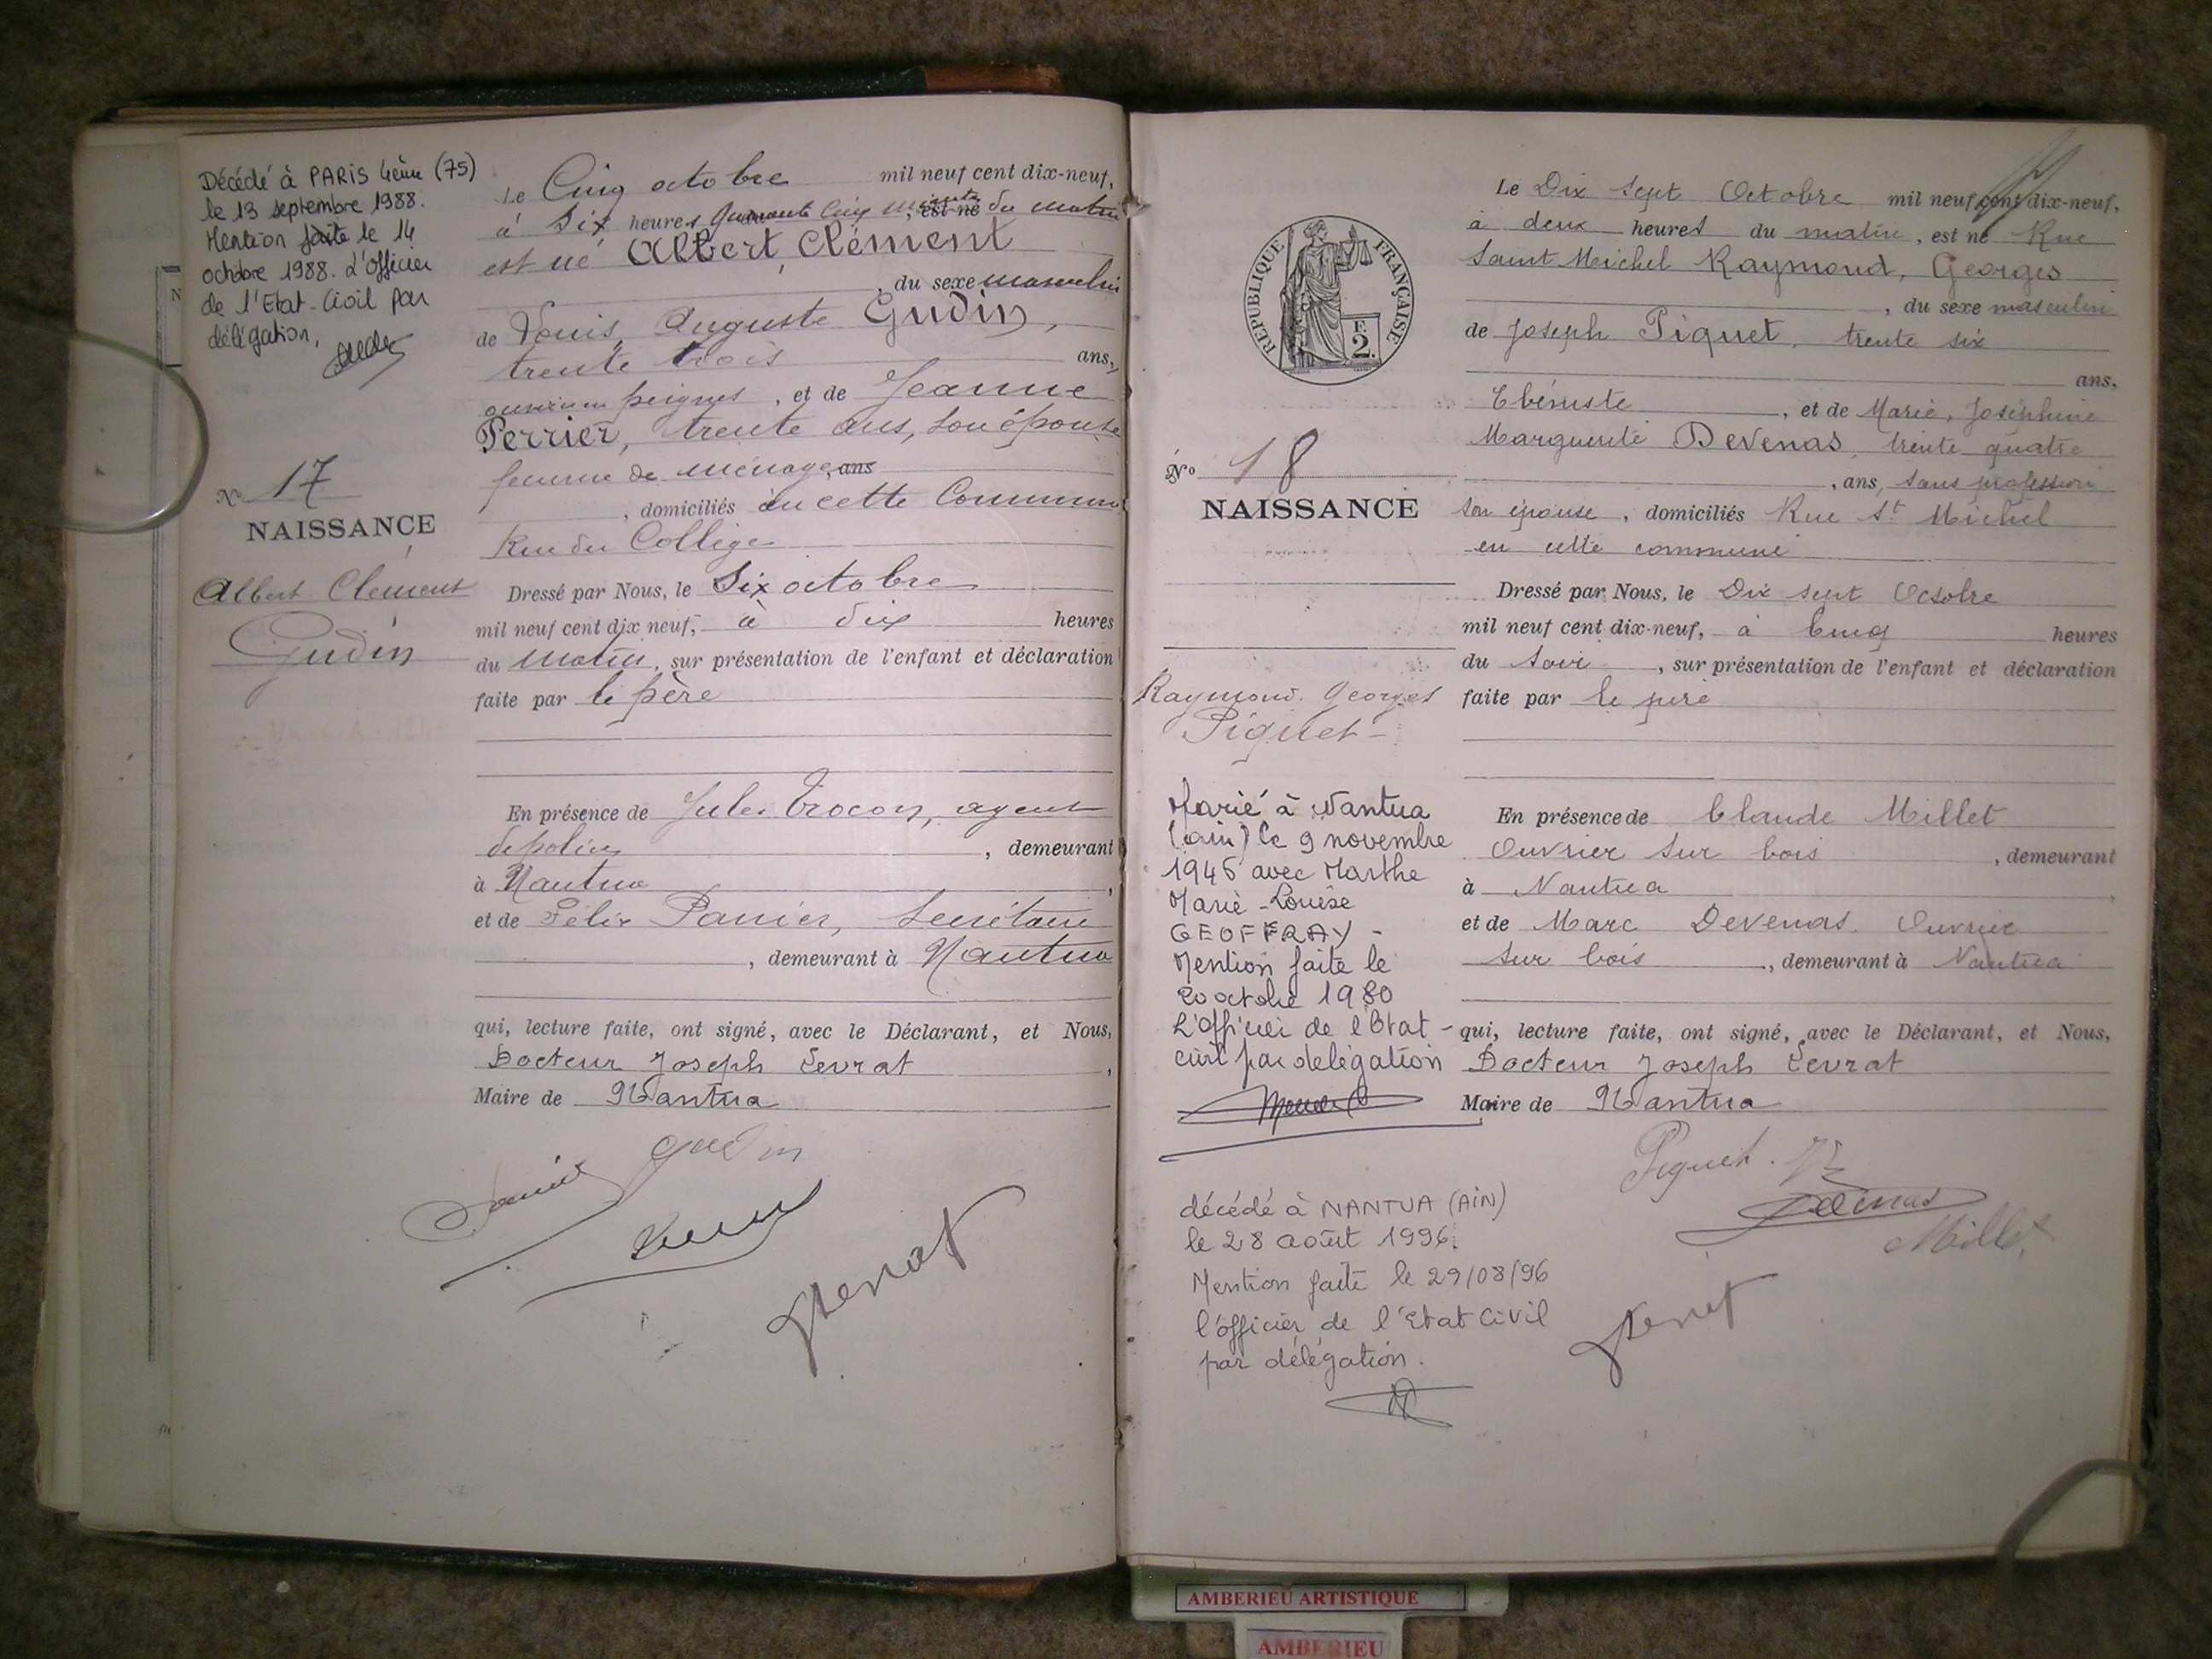 Décédé à PARIS 4ème (75)
le 13 septembre 1988.
Mention faite le 14
octobre 1988. L'officier
de l'Etat-Civil par
délégation,
No 17
NAISSANCE
Albert Clément
Gudin
Le Cinq octobre mil neuf cent dix-neuf,
à Six heures quarante cinq minutes, est né du matin
est né Albert, Clément
, du sexe masculin
de Louis, Auguste Gudin,
trente trois ans,
ouvrier en peignes, et de Jeanne
Perrier, trente ans, son épouse
femme de ménage, ans
, domiciliés en cette Commune
Rue du Collège
Dressé par Nous, le Six octobre
mil neuf cent dix neuf, à dix heures
du matin, sur présentation de l'enfant et déclaration
faite par le père
En présence de Jules Trocon, agent
de police, demeurant
à Nantua,
et de Félix Panier, Secrétaire
, demeurant à Nantua
qui, lecture faite, ont signé, avec le Déclarant, et Nous,
Docteur Joseph Levrat,
Maire de Nantua
Gudin
RÉPUBLIQUE FRANÇAISE
F.
2.
No 18
NAISSANCE
Raymond. Georges
Piquet
Marié à Nantua
(ain) le 9 novembre
1946 avec Marthe
Marie-Louise
GEOFFRAY -
Mention faite le
20 octobre 1980
L'officier de l'Etat-
civil par délégation
décédé à NANTUA (AIN)
le 28 août 1996.
Mention faite le 29/08/96
l'officier de l'Etat Civil
par délégation.
Le Dix sept Octobre mil neuf cent dix-neuf,
à deux heures du matin, est né Rue
Saint Michel Raymond, Georges
, du sexe masculin
de Joseph Piquet, trente six
ans,
Ebéniste, et de Marie, Joséphine
Marguerite Devenas, trente quatre
, ans, sans profession
son épouse, domiciliés Rue St Michel
en cette commune
Dressé par Nous, le Dix sept Octobre
mil neuf cent dix-neuf, à Cinq heures
du soir, sur présentation de l'enfant et déclaration
faite par le père
En présence de Claude Millet
Ouvrier sur bois, demeurant
à Nantua,
et de Marc Devenas, Ouvrier
sur bois, demeurant à Nantua
qui, lecture faite, ont signé, avec le Déclarant, et Nous,
Docteur Joseph Levrat
Maire de Nantua
Piquet
Millet
AMBERIEU ARTISTIQUE
AMBERIEU